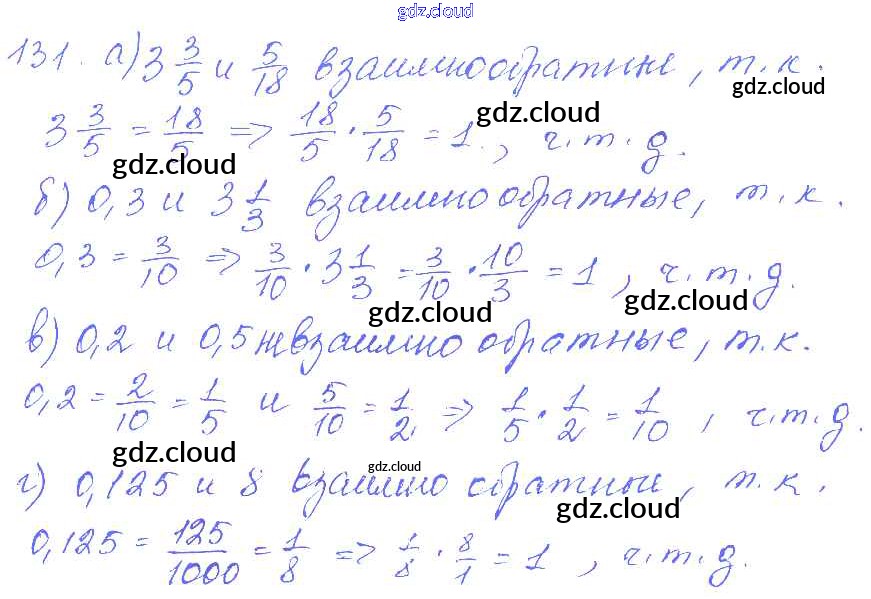 gdz.cloud
131. а) 3 3/5 и 5/18 взаимнообратные, т.к.
gdz.cloud
3 3/5 = 18/5 => 18/5 · 5/18 = 1, ч.т.д.
gdz.cloud
gdz.cloud
б) 0,3 и 3 1/3 взаимно обратные, т.к.
0,3 = 3/10 => 3/10 · 3 1/3 = 3/10 · 10/3 = 1, ч.т.д.
gdz.cloud
gdz.cloud
в) 0,2 и 0,5 не взаимно обратные, т.к.
0,2 = 2/10 = 1/5 и 5/10 = 1/2 => 1/5 · 1/2 = 1/10, ч.т.д.
gdz.cloud
gdz.cloud
г) 0,125 и 8 взаимно обратные, т.к.
gdz.cloud
0,125 = 125/1000 = 1/8 => 1/8 · 8/1 = 1, ч.т.д.